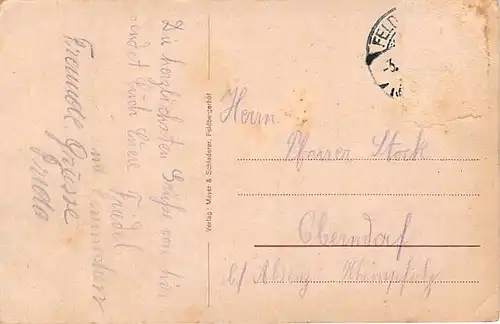 Die herzlichsten Grüße von hier
sendet Euch Eure Friedel
und Ännchen
Freundl. Grüsse
Frieda
Verlag: Mayer & Schladerer, Feldbergerhof
FELD
Herrn
Pfarrer Stock
Oberndorf
b/ Alsenz Rheinpfalz